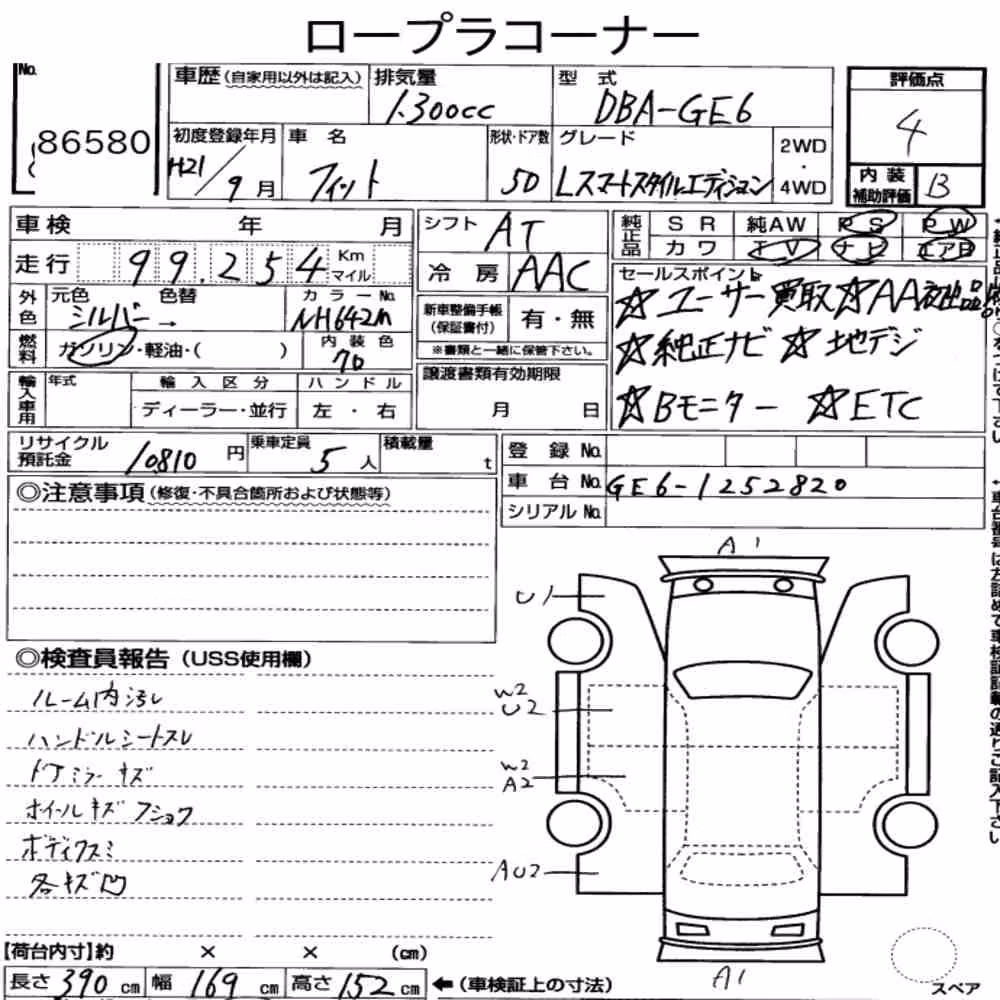 ロープラコーナー
No.
86580
車歴(自家用以外は記入) 排気量 1.300cc 型式 DBA-GE6
初度登録年月 H21/9月 車名 フィット 形状・ドア数 5D グレード Lスマートスタイルエディション 2WD・4WD
評価点 4
内装補助評価 B
車検 年 月
走行 99.254 Km マイル
シフト AT
冷房 AAC
純正品 SR 純AW PS PW
カワ TV ナビ エアB
外色 元色 シルバー → 色替 カラーNo. NH642M
燃料 ガソリン・軽油・( ) 内装色 70
新車整備手帳(保証書付) 有・無
※書類と一緒に保管下さい。
セールスポイント
☆ユーザー買取☆AA初出品
☆純正ナビ ☆地デジ
☆Bモニター ☆ETC
輸入車用 年式 輸入区分 ハンドル
ディーラー・並行 左・右
譲渡書類有効期限
月 日
リサイクル預託金 10810円 乗車定員 5人 積載量 t
登録No.
車台No. GE6-1252820
シリアルNo.
◎注意事項(修復・不具合箇所および状態等)
◎検査員報告(USS使用欄)
ルーム内汚れ
ハンドルシートスレ
ドアミラーキズ
ホイールキズ フショク
ボディクスミ
各キズ凹
A1
U1
W2
U2
W2
A2
AU2
A1
【荷台内寸】約 × × (cm)
長さ 390 cm 幅 169 cm 高さ 152 cm ←(車検証上の寸法)
スペア
↑車台番号は左詰めで車検証記載の通りご記入下さい